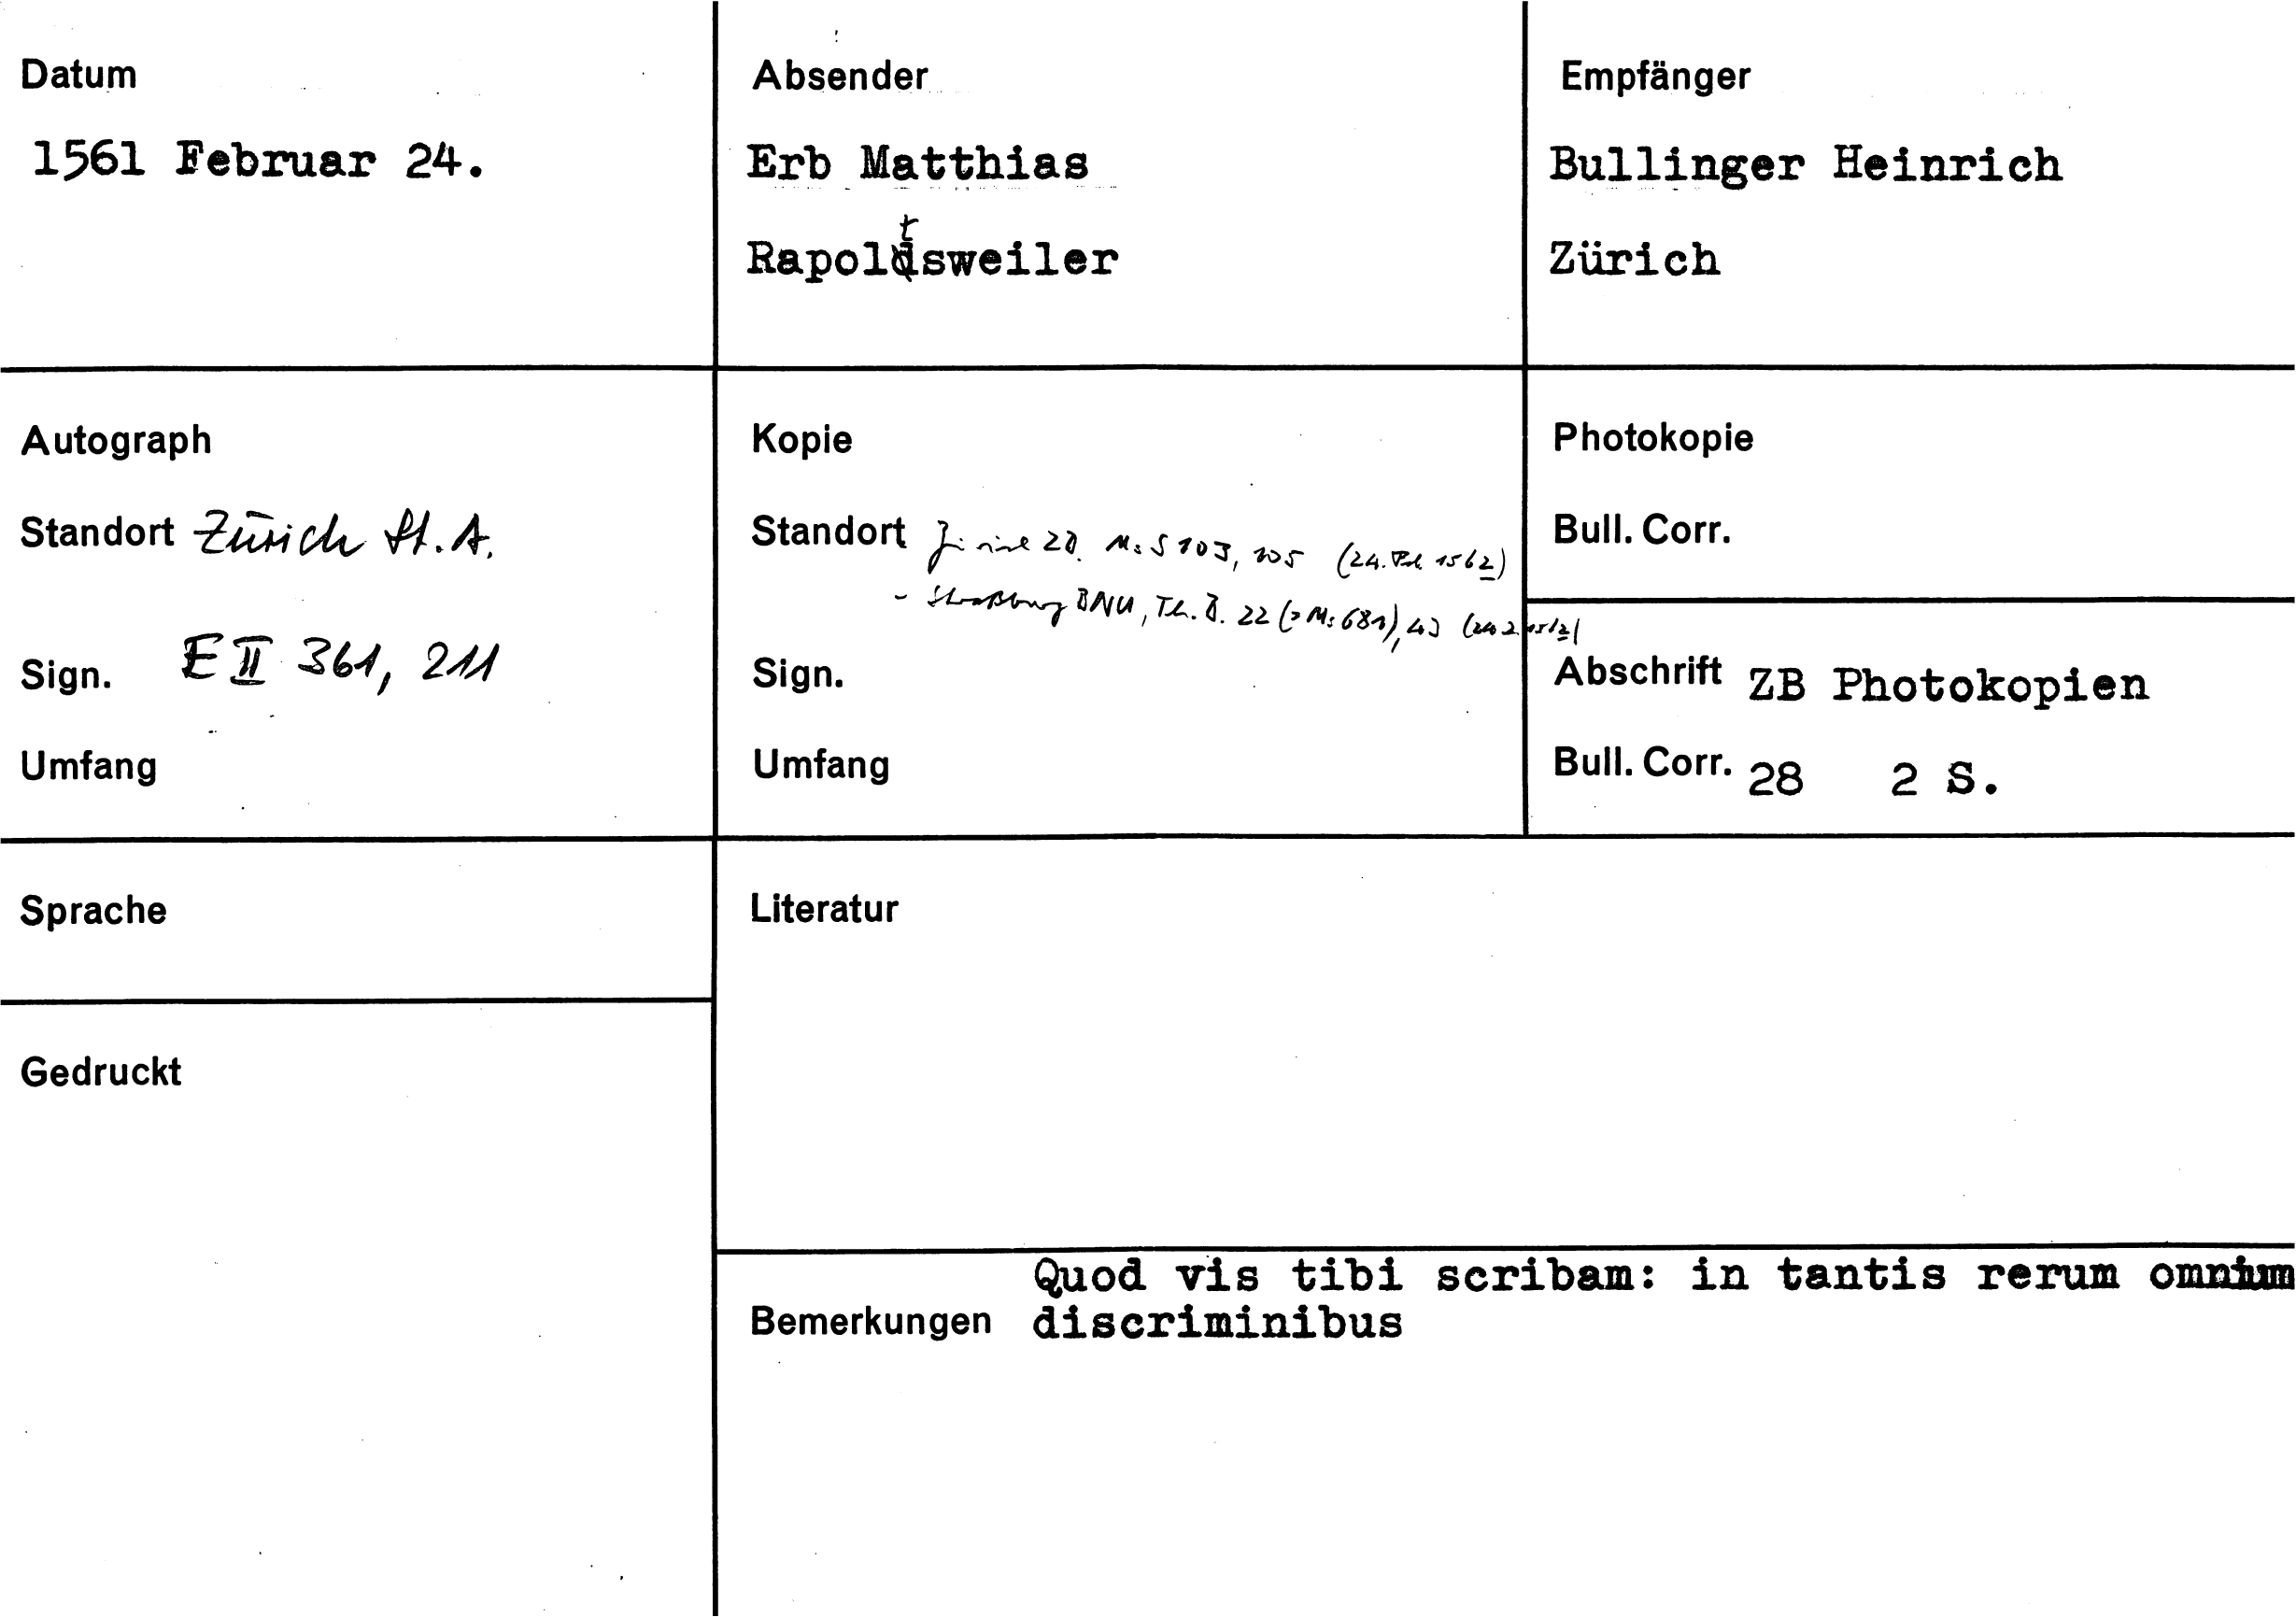 Datum
1561 Februar 24.
Absender
Erb Matthias
Rapoltsweiler
Empfänger
Bullinger Heinrich
Zürich
Autograph
Standort Zürich St. A.
Sign. E II 361, 211
Umfang
Kopie
Standort Zürich ZB. Ms S 103, 105 (24. Feb. 1562)
- Straßburg BNU, Th. B. 22 (= Ms 681), 43 (24.2.1562)
Sign.
Umfang
Photokopie
Bull. Corr.
Abschrift ZB Photokopien
Bull. Corr. 28 2 S.
Sprache
Gedruckt
Literatur
Quod vis tibi scribam: in tantis rerum omnium
Bemerkungen discriminibus